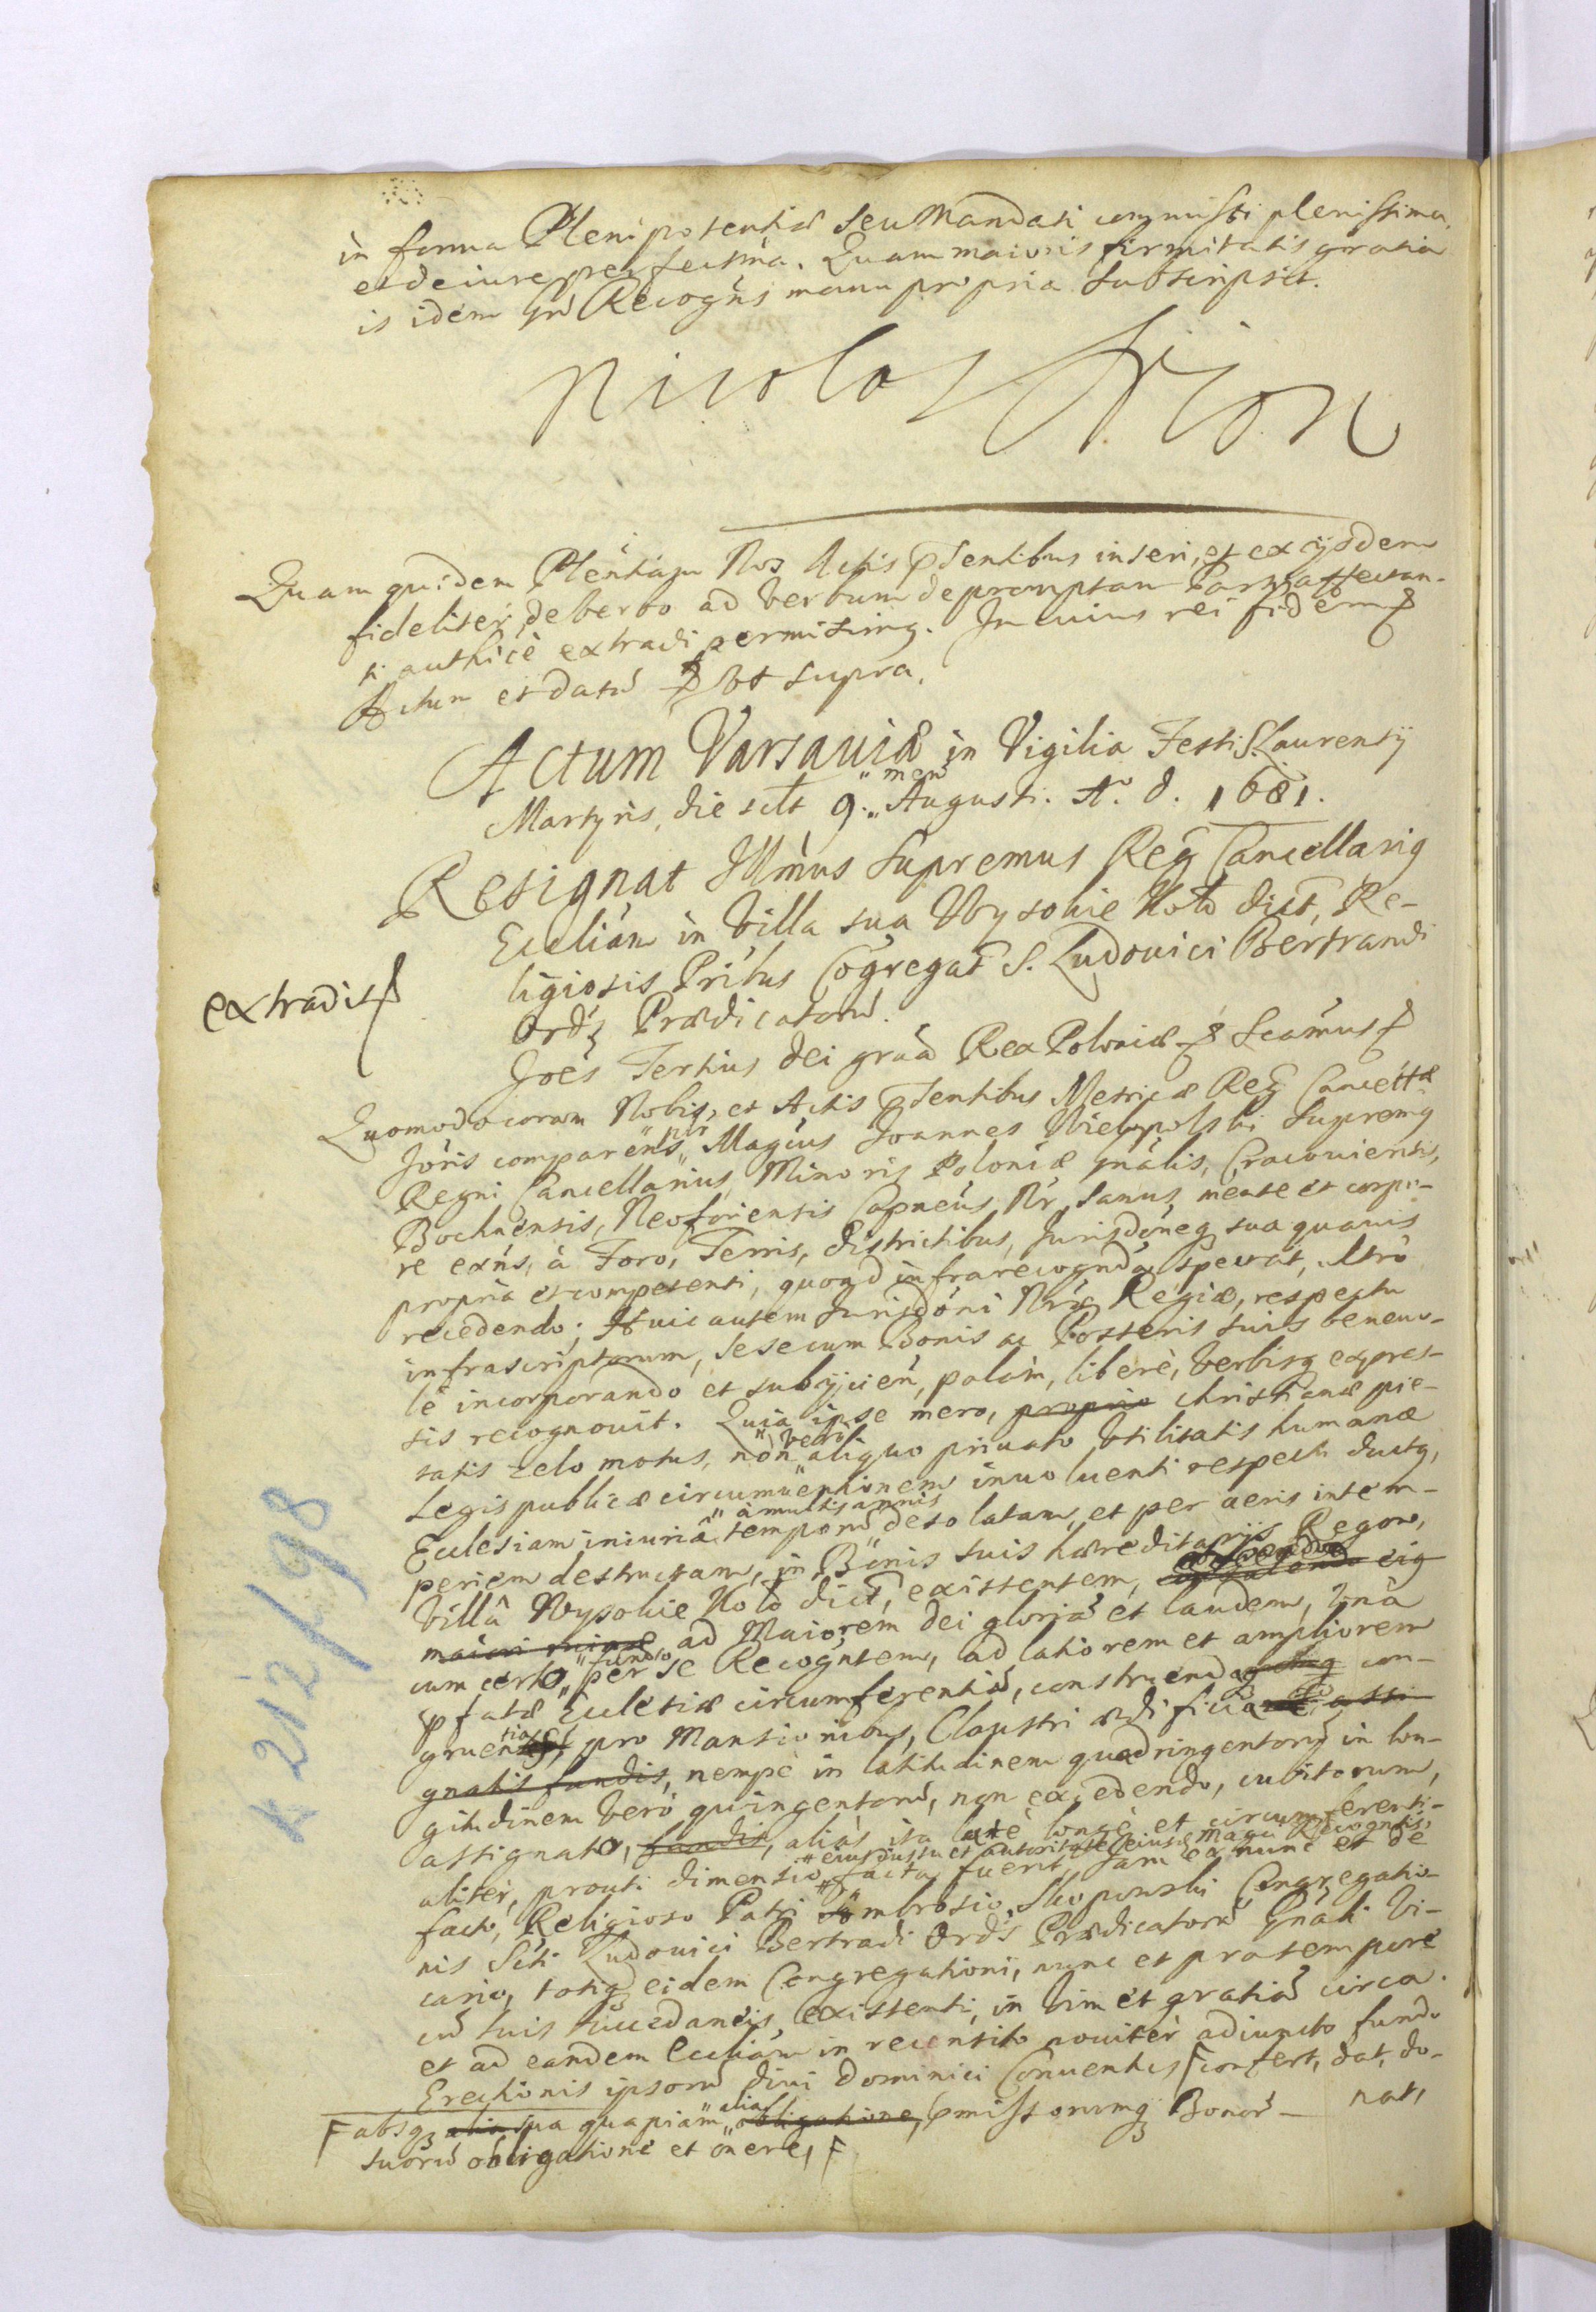 in forma Plenipotentiæ seu Mandati commissi plenissima
et de iure perfectma. Quam maioris firmitatis gratia
is idem gñ Recogñs manu propria subscripsit.
Nicolas
Quam quidem Plentiam Nos Actis pñsentibus inseri, et ex ijsdem
fideliter de verbo ad verbum depromptam Parti affectan-
ti authice extradi permisimq. In cuius rei fidem
Actum et datũ ut supra.
Actum Varsaviæ in Vigilia Festi S. Laurentij
Martyris, die sclt 9. "men" Augusti. A. d. 1681.
Resignat Illmus Supremus Regni Cancellariq
Eccliam in Villa sua Wysokie Koło dict, Re-
ligiosis Pribus Cõgregat S. Ludovici Bertrandi
Ords Prædicatorũ.
extradit
Joes Tertius Dei gratia Rex Poloniæ Scamus
Quomodo coram Nobis, et Actis pñsentibus Metricæ Regni Cancell
Joris comparens "plr" Magcus Joannes Wielopolski Supremq
Regni Cancellarius, Minoris Poloniæ gnalis, Cracoviensis,
Bochnensis, Neoforiensis Capneus, Nr, sanus mente et corpo-
re exns, à Foro, Terris, districtibus, Jurisdoneq sua quavis
propria et competenti, quoad infrarecognda spectat, ultrò
recedendo; Huic autem Jurisdoni Nræ Regiæ, respectu
infrascriptorum, sese cum Bonis ac Posteris suis benevo-
le incorporando et subijcien, palam, liberè, verbisq expres-
sis recognovit. Quia ipse mero, proprio christianæ pie-
tatis zelo motus, non "verò" aliquo privato utilitatis humanæ
Legis publicæ circumventionem involventi respectu ductq,
Ecclesiam iniuriâ temporũ "à multis annis" desolatam, et per aeris intem-
periem destructam, in Bonis suis hæreditarijs Regow,
Villâ Wysokie Koło dict, existentem, eiq
maiori ruinæ, ad Maiorem dei gloriã et laudem, unà
cum certo "fundo" per se Recogntem, ad latiorem et ampliorem
pfatæ Ecclesiæ circumferentiã, construendaq con-
gruentia pro Mansionibus, Claustri ædificia assi-
gnatis fundis, nempè in latitudinem quadringentorũ in lon-
gitudinem verò quingentorũ, non excedendo, cubitorum,
assignato, fundis, aliàs ita latè longè et circumferenti-
aliter, prouti dimensio "eius iussu et autoritate eiusd Magci Recogntis" facta fuerit, Jam ex nunc et de
facto, Religioso Patri Ambrosio Skopowski Congregatio-
nis Scti Ludovici Bertradi Ords Prædicatorũ Gñali Vi-
cario, totiq eidem Congregationi, nunc et pro tempore
cũ suis succedaneis, existenti, in vim et gratiã circa
et ad eandem Eccliam in recensito noviter adiuncto fundo
Erectionis ipsorũ divi Dominici Conventus F confert, dat, do-
nat,
F absq alia sua quapiam "alia" obligatione, pmissorumq Bonor
suorũ obligatione et onere, F
k 212/98